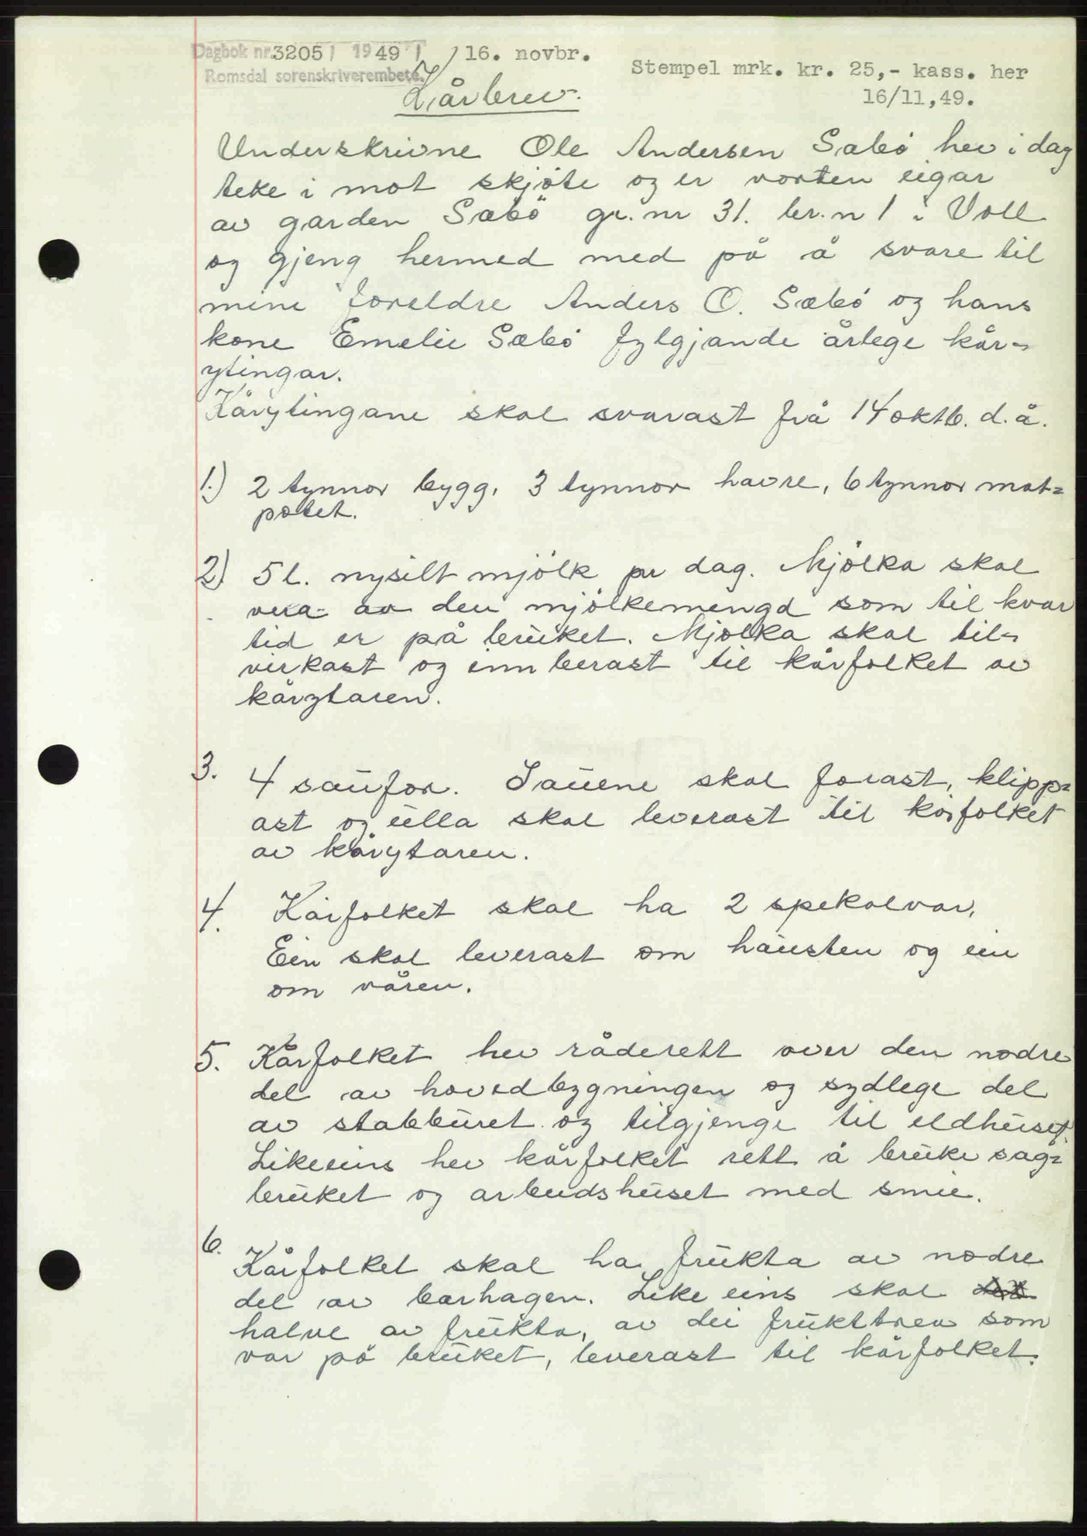 Dagbok nr. 3205 / 1949 / 16. novbr.
Romsdal sorenskriverembete.
Stempel mrk. kr. 25,- kass. her
16/11,49.
Kårbrev.
Underskrivne Ole Andersen Sæbö hev i dag
teke i mot skjöte og er vorten eigar
av garden Sæbö gr. nr 31. br. n 1 i Voll
og gjeng hermed med på å svare til
mine foreldre Anders O. Sæbö og hans
kone Emelie Sæbö fylgjande årlege kår-
ytingar.
Kårytingane skal svarast frå 14 oktb. d. å.
1.) 2 tynnor bygg, 3 tynnor havre, 6 tynnor mat=
potet.
2) 5 l. nysilt mjölk pr dag. Mjölka skal
vera av den mjölkemengd som til kvar
tid er på bruket. Mjölka skal til-
virkast og innberast til kårfolket av
kårytaren.
3. 4 saufor. Sauene skal forast, klipp=
ast og ulla skal leverast til kårfolket
av kårytaren.
4. Kårfolket skal ha 2 spekalvar,
Ein skal leverast om hausten og ein
om våren.
5. Kårfolket hev råderett over den nodre
del av hovedbygningen og sydlege del
av stabburet og tilgjenge til eldhuset.
Likeeins hev kårfolket rett å bruke sag=
bruket og arbeidshuset med smie.
6. Kårfolket skal ha frukta av nodre
del av barhagen. Like eins skal
halve av frukta, av dei frukttrea som
var på bruket, leverast til kårfolket.